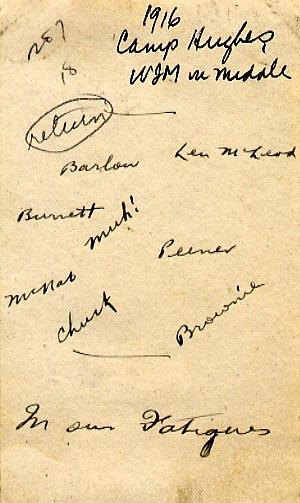 1916
Camp Hughes
WJM in middle
287
18
return
Barlow
Len McLeod
Burnett
Muh!
Peener
McNab
Chuck
Brownie
In our Fatigues